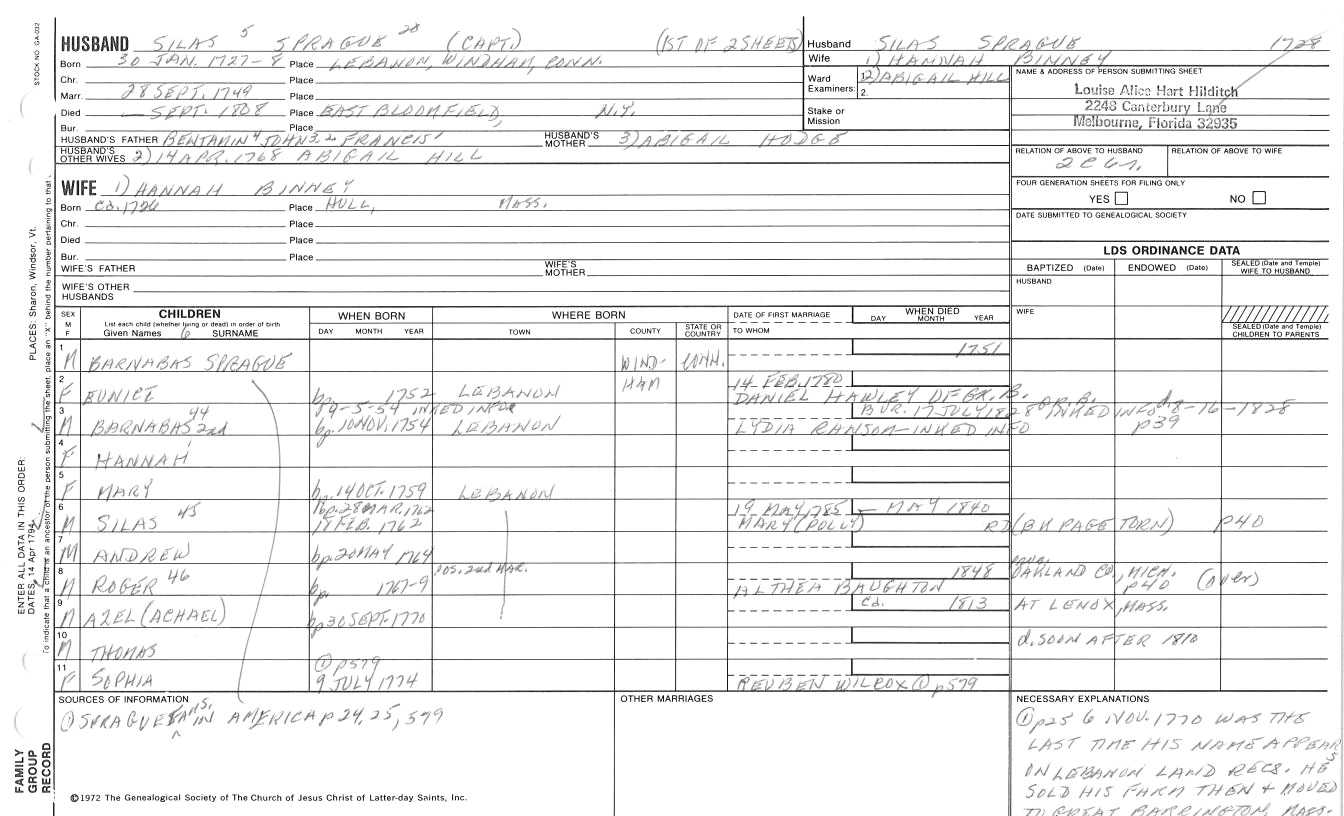 STOCK NO. GA-032
PLACES: Sharon, Windsor, Vt.
ENTER ALL DATA IN THIS ORDER:
DATES, 14 Apr 1794
To indicate that a child is an ancestor of the person submitting the sheet, place an "X" behind the number pertaining to that
FAMILY GROUP RECORD
HUSBAND SILAS 5 SPRAGUE 28 (CAPT.) (1ST OF 2 SHEETS)
Born 30 JAN. 1727-8 Place LEBANON, WINDHAM, CONN.
Chr. Place
Marr. 28 SEPT. 1749 Place
Died — SEPT. 1808 Place EAST BLOOMFIELD, N.Y.
Bur. Place
HUSBAND'S FATHER BENJAMIN 4 JOHN 3, 2 FRANCIS 1 HUSBAND'S MOTHER 3) ABIGAIL HODGE
HUSBAND'S OTHER WIVES 2) 14 APR. 1768 ABIGAIL HILL
Husband SILAS SPRAGUE 1728
Wife 1) HANNAH BINNEY
Ward Examiners: 1. 2) ABIGAIL HILL
2.
Stake or Mission
NAME & ADDRESS OF PERSON SUBMITTING SHEET
Louise Alice Hart Hilditch
2248 Canterbury Lane
Melbourne, Florida 32935
RELATION OF ABOVE TO HUSBAND RELATION OF ABOVE TO WIFE
2C6r.
FOUR GENERATION SHEETS FOR FILING ONLY
YES NO
DATE SUBMITTED TO GENEALOGICAL SOCIETY
WIFE 1) HANNAH BINNEY
Born Ca. 1726 Place HULL, MASS.
Chr. Place
Died Place
Bur. Place
WIFE'S FATHER WIFE'S MOTHER
WIFE'S OTHER HUSBANDS
LDS ORDINANCE DATA
BAPTIZED (Date) ENDOWED (Date) SEALED (Date and Temple) WIFE TO HUSBAND
HUSBAND
WIFE
SEALED (Date and Temple) CHILDREN TO PARENTS
SEX M F
CHILDREN
List each child (whether living or dead) in order of birth
Given Names 6 SURNAME
WHEN BORN
DAY MONTH YEAR
WHERE BORN
TOWN COUNTY STATE OR COUNTRY
DATE OF FIRST MARRIAGE
TO WHOM
WHEN DIED
DAY MONTH YEAR
1 M BARNABAS SPRAGUE WIND- CONN. 1751
2 F EUNICE bp. 1752 LEBANON HAM 14 FEB. 1780
DANIEL HAWLEY OF GR. B.
3 M BARNABAS 2nd 44 9-5-54 INKED INFO BUR. 17 JULY 1828 GR. B. INKED INFO d. 8-16-1828
bp. 10 NOV. 1754 LEBANON LYDIA RANSOM - INKED INFO p39
4 F HANNAH
5 F MARY bp. 14 OCT. 1759 LEBANON
6 M SILAS 45 bp. 28 MAR. 1762 19 MAY, 1785 — MAY 1840
18 FEB. 1762 MARY (POLLY) RD (BK PAGE TORN) p40
7 M ANDREW bp. 20 MAY 1764
8 M ROGER 46 POS. 2nd MAR. 1848 OAKLAND CO., MICH.
bp. 1767-9 ALTHEA BAUGHTON p40 (over)
9 M AZEL (ACHAEL) bp 30 SEPT. 1770 Ca. 1813 AT LENOX, MASS.
10 M THOMAS d. SOON AFTER 1810
11 F SOPHIA ① p579
9 JULY 1774 REUBEN WILCOX ① p579
SOURCES OF INFORMATION
① SPRAGUE FAMS. IN AMERICA p 24, 25, 579
OTHER MARRIAGES
NECESSARY EXPLANATIONS
① p25 6 NOV. 1770 WAS THE
LAST TIME HIS NAME APPEARS
ON LEBANON LAND RECS. HE
SOLD HIS FARM THEN & MOVED
TO GREAT BARRINGTON, MASS.
©1972 The Genealogical Society of The Church of Jesus Christ of Latter-day Saints, Inc.